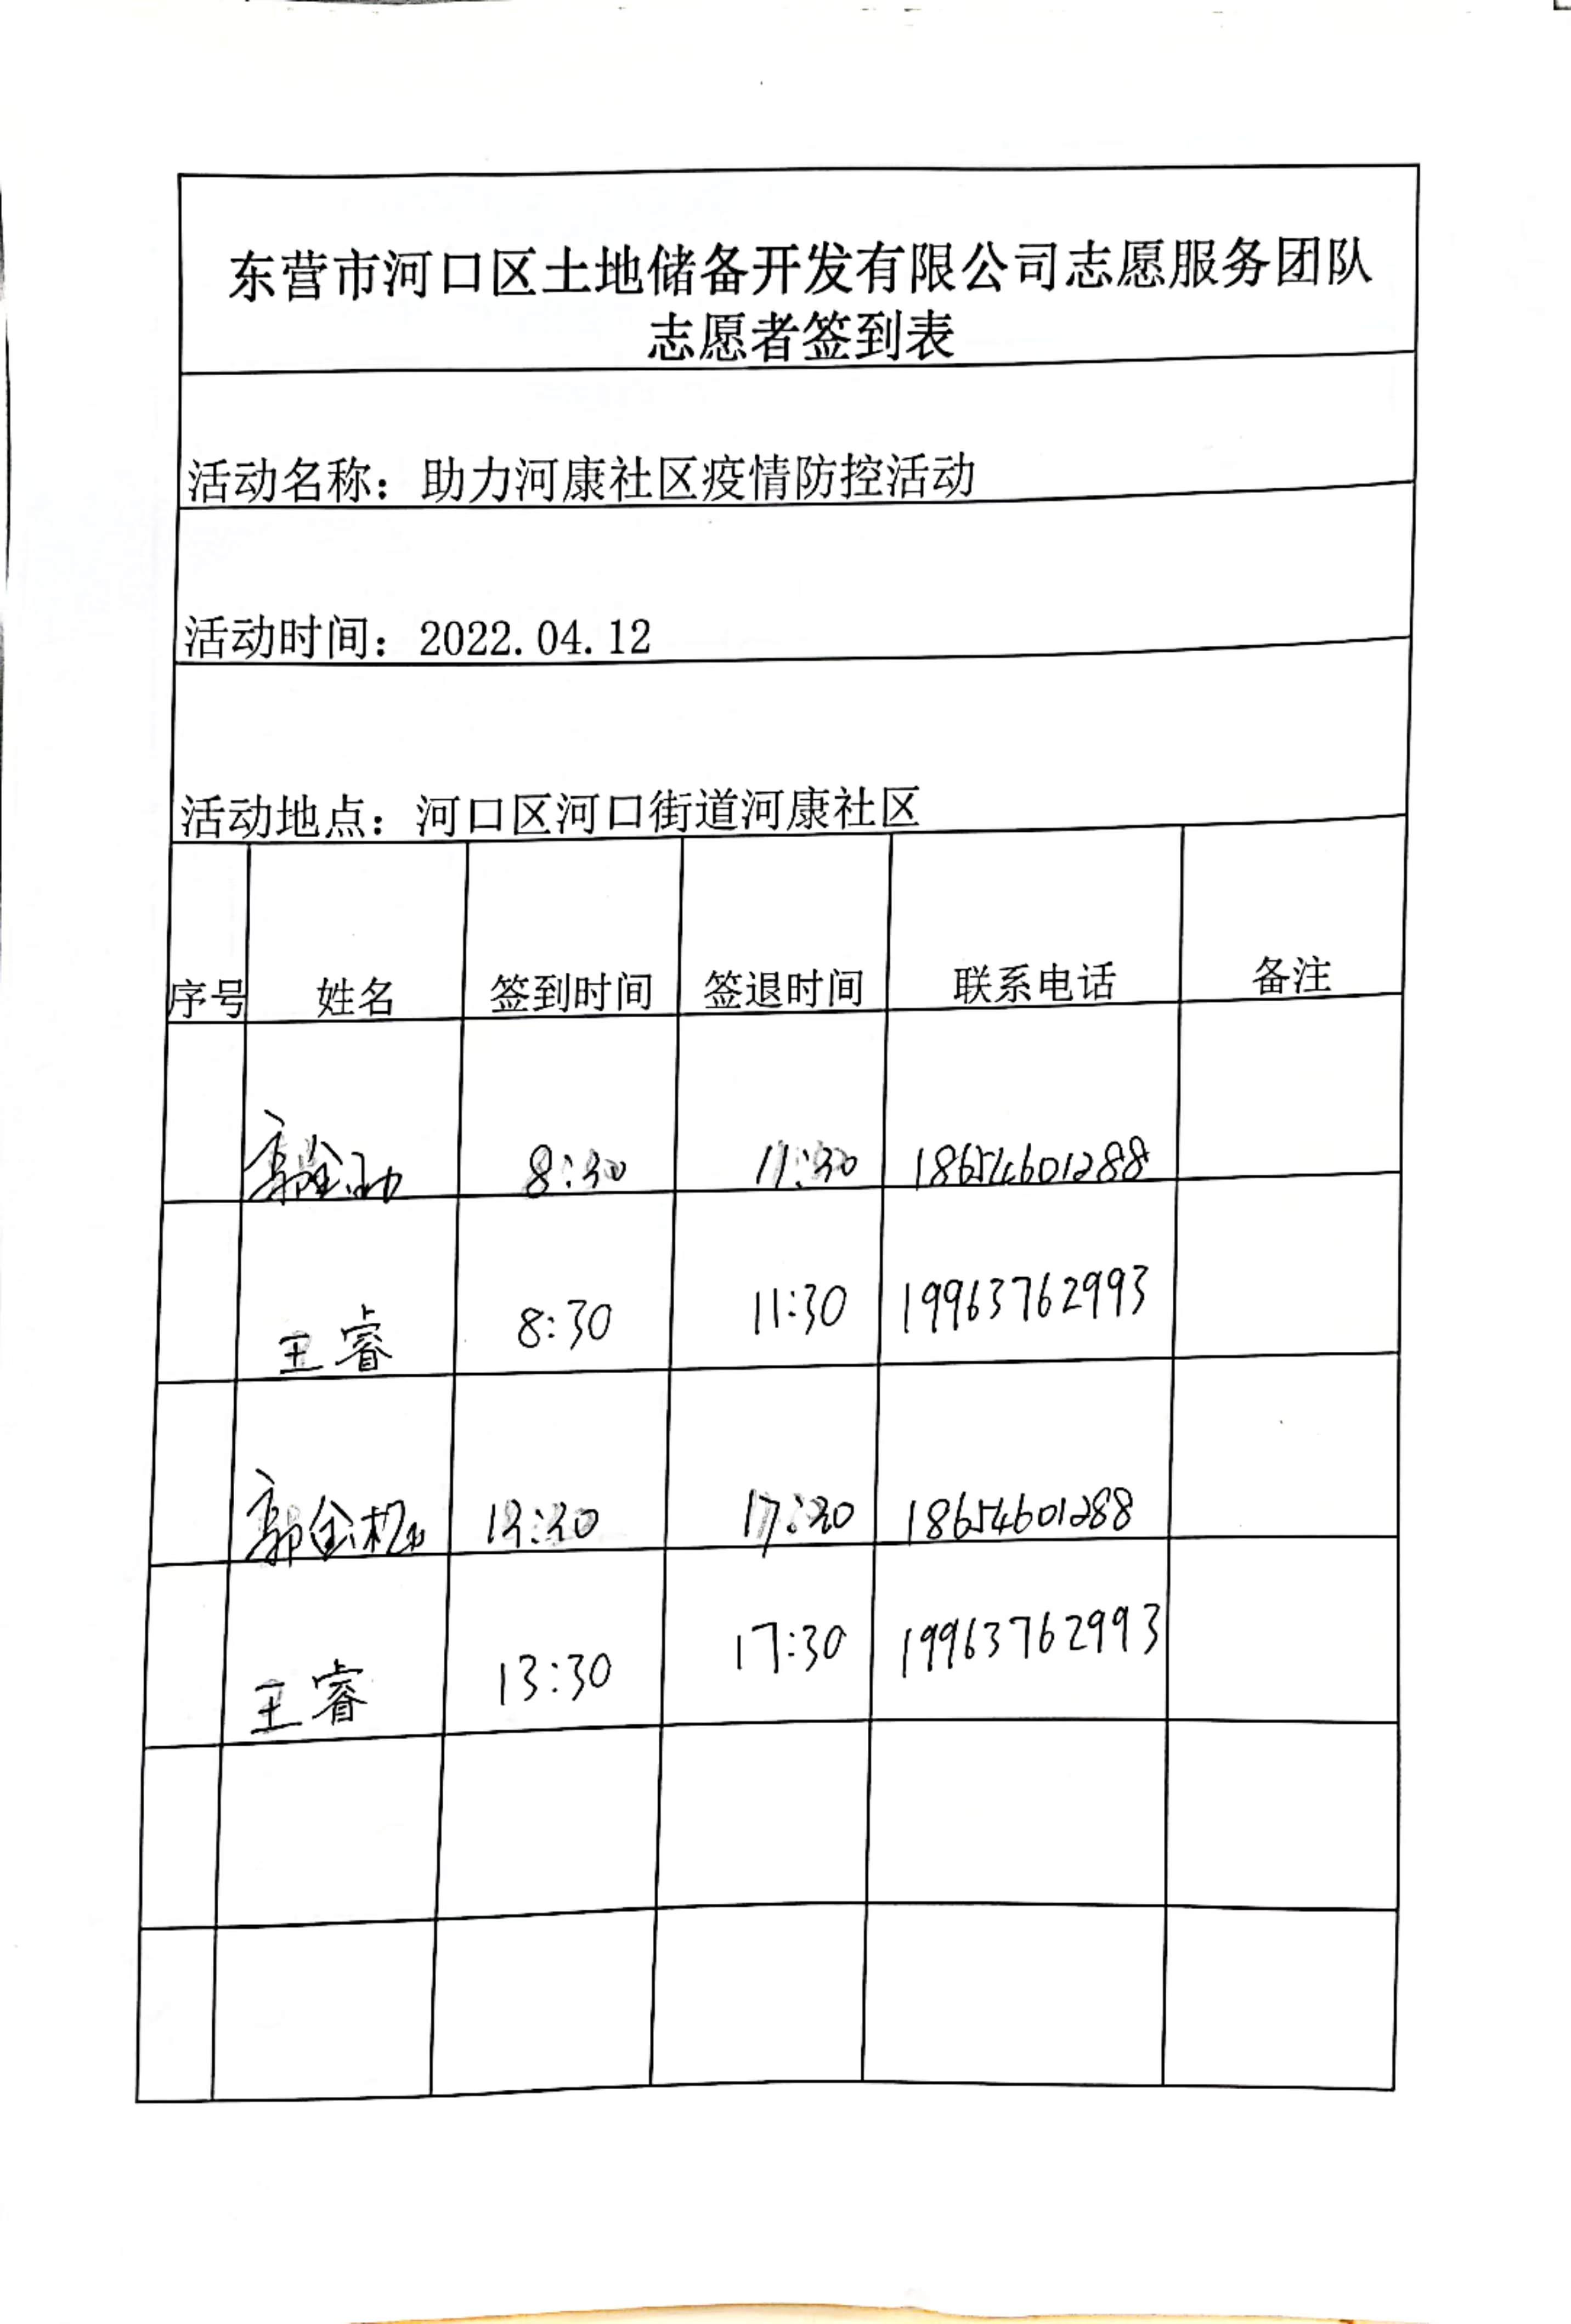 东营市河口区土地储备开发有限公司志愿服务团队
志愿者签到表
活动名称：助力河康社区疫情防控活动
活动时间：2022.04.12
活动地点：河口区河口街道河康社区
序号 姓名 签到时间 签退时间 联系电话 备注
8:30 11:30 18654601288
王睿 8:30 11:30 19963762993
郭金 13:30 17:30 18654601288
王睿 13:30 17:30 19963762993